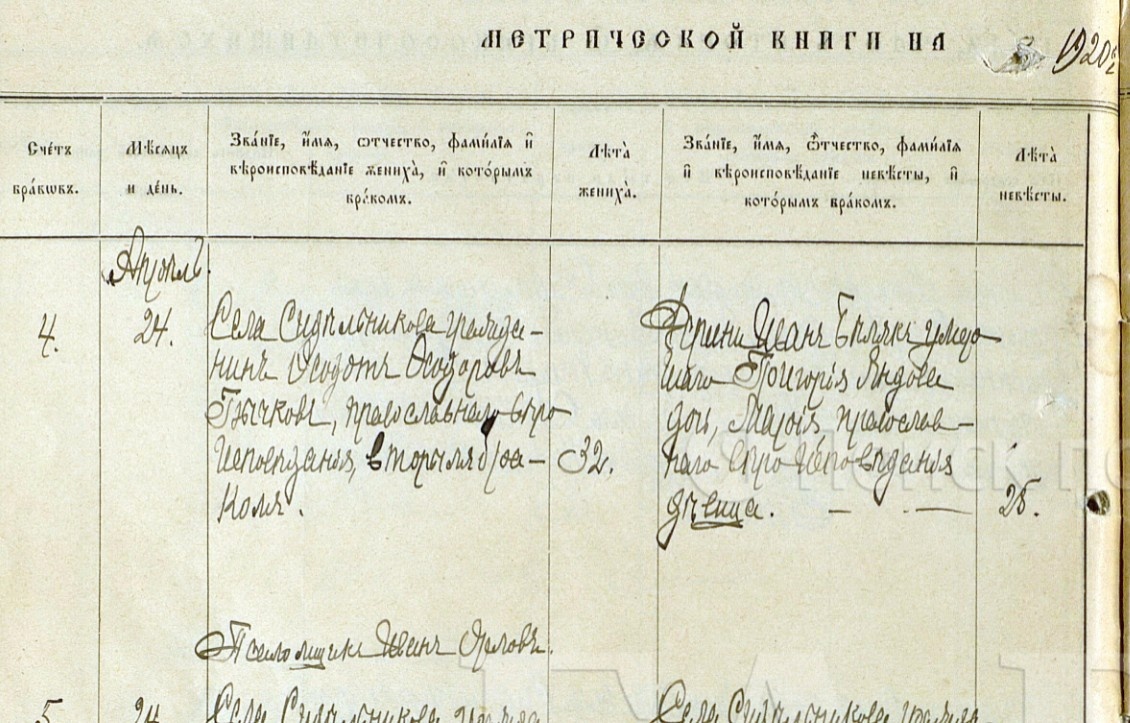 МЕТРИЧЕСКОЙ КНИГИ НА 1920
Сче́тъ бра́кѡвъ.
Мѣсѧцъ и де́нь.
Зва́нїе, и҆́мѧ, ѻ҆́тчество, фамѝлїѧ и҆ вѣроисповѣ́данїе жениха̀, и҆ кото́рымъ бра́комъ.
Лѣта̀ жениха̀.
Зва́нїе, и҆́мѧ, ѻ҆́тчество, фамѝлїѧ и҆ вѣроисповѣ́данїе невѣ́сты, и҆ кото́рымъ бра́комъ.
Лѣта̀ невѣ́сты.
Апрѣль.
4.
24.
Села Сидѣльникова гражда-
нинъ Ѳеодотъ Ѳеодоровъ
Бычковъ, православнаго вѣро
исповѣданія, вторымъ бра-
комъ.
32.
Иванъ умер-
шаго Григорія
дочь, Марія, православ-
наго вѣро исповѣданія
дѣвица.
25.
Псаломщикъ Иванъ Орловъ.
5.
24.
Села Сидѣльникова
Села Сидѣльникова